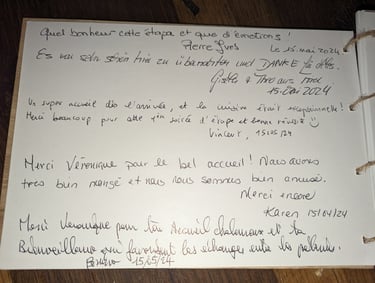 Quel bonheur cette étape et que d'émotions !
Pierre Yves Le 15 mai 2024
Es war sehr schön hier zu übernachten und DANKE für alles.
15.Mai 2024
Un super accueil dès l'arrivée, et la cuisine était exceptionnelle !
Merci beaucoup pour cette 1ère soirée d'étape et bonne réussite ☺
Vincent, 15/05/24
Merci Véronique pour le bel accueil ! Nous avons
tres bien mangé et nous nous sommes bien amusé.
Merci encore
Karen 15/04/24
Merci Véronique pour ton accueil chaleureux et ta
Bienveillance qui favorisent les échanges entre les pèlerins.
15/05/24